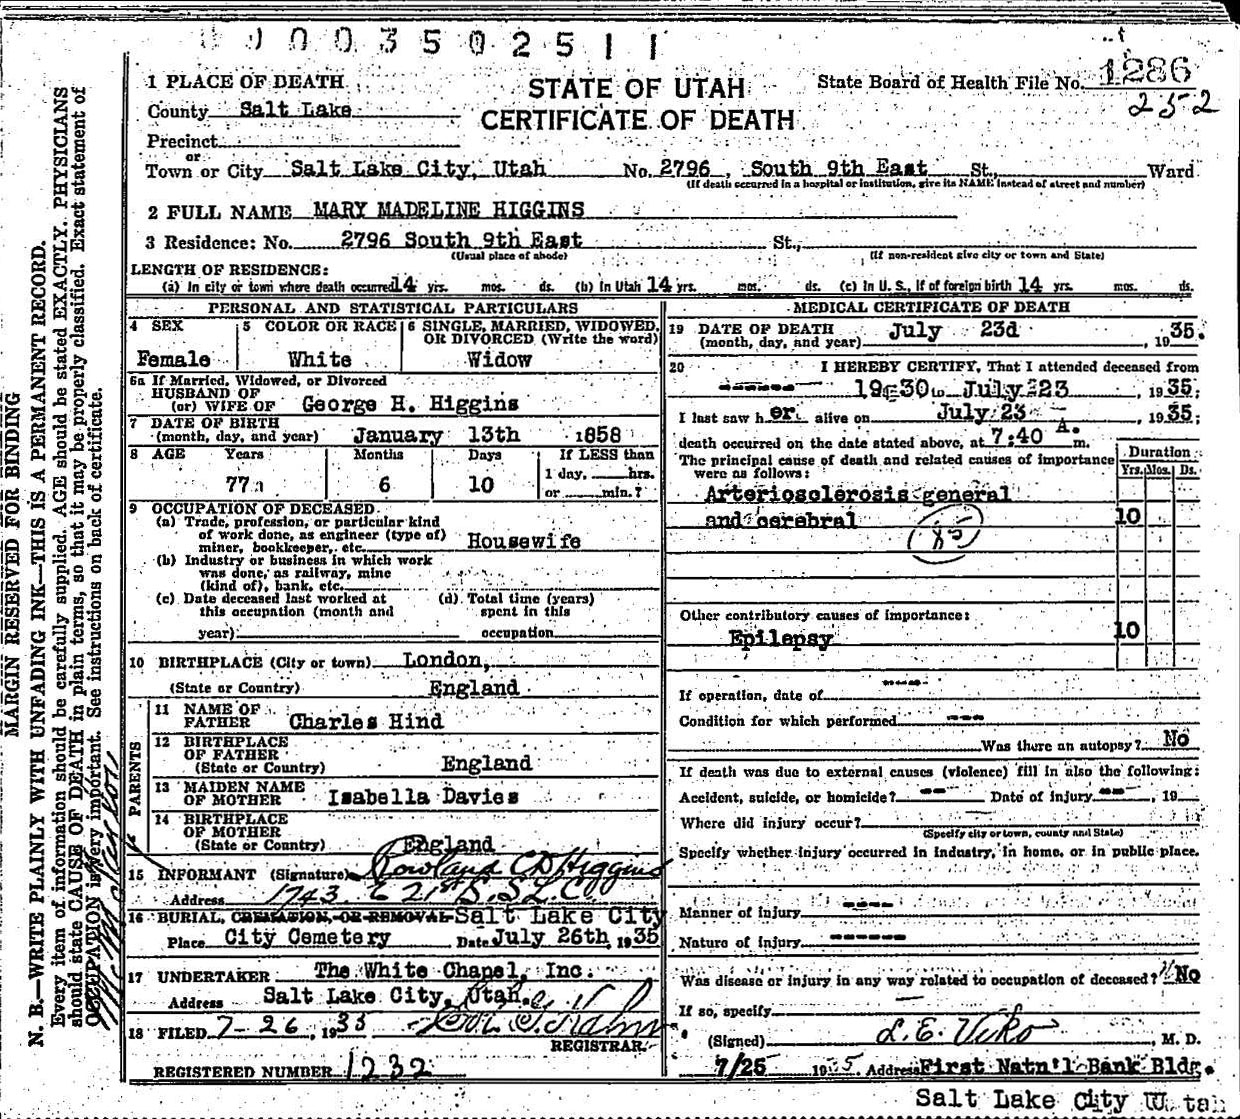 0003502511
1 PLACE OF DEATH
STATE OF UTAH
CERTIFICATE OF DEATH
State Board of Health File No. 1286
252
County Salt Lake
Precinct
or
Town or City Salt Lake City, Utah No. 2796, South 9th East St., Ward
(If death occurred in a hospital or institution, give its NAME instead of street and number)
2 FULL NAME MARY MADELINE HIGGINS
3 Residence: No. 2796 South 9th East St.,
(Usual place of abode) (If non-resident give city or town and State)
LENGTH OF RESIDENCE:
(a) In city or town where death occurred 14 yrs. mos. ds. (b) In Utah 14 yrs. mos. ds. (c) In U. S., if of foreign birth 14 yrs. mos. ds.
PERSONAL AND STATISTICAL PARTICULARS
4 SEX
Female
5 COLOR OR RACE
White
6 SINGLE, MARRIED, WIDOWED, OR DIVORCED (Write the word)
Widow
6a If Married, Widowed, or Divorced
HUSBAND OF
(or) WIFE OF George H. Higgins
7 DATE OF BIRTH
(month, day, and year) January 13th 1858
8 AGE Years Months Days If LESS than
1 day, hrs.
77 6 10 or min.?
9 OCCUPATION OF DECEASED
(a) Trade, profession, or particular kind
of work done, as engineer (type of)
miner, bookkeeper, etc. Housewife
(b) Industry or business in which work
was done, as railway, mine
(kind of), bank, etc.
(c) Date deceased last worked at
this occupation (month and
year)
(d) Total time (years)
spent in this
occupation
10 BIRTHPLACE (City or town) London,
(State or Country) England
PARENTS
11 NAME OF
FATHER Charles Hind
12 BIRTHPLACE
OF FATHER
(State or Country) England
13 MAIDEN NAME
OF MOTHER Isabella Davies
14 BIRTHPLACE
OF MOTHER
(State or Country) England
15 INFORMANT (Signature) Rowland C D Higgins
Address 1743 E 21st S. S.L.C.
16 BURIAL, CREMATION, OR REMOVAL Salt Lake City
Place City Cemetery Date July 26th, 1935
17 UNDERTAKER The White Chapel, Inc.
Address Salt Lake City, Utah.
18 FILED 7-26, 1935
REGISTRAR.
REGISTERED NUMBER 1232
MEDICAL CERTIFICATE OF DEATH
19 DATE OF DEATH
(month, day, and year) July 23d, 1935.
20 I HEREBY CERTIFY, That I attended deceased from
------ 1930 to July 23, 1935;
I last saw her alive on July 23, 1935;
death occurred on the date stated above, at 7:40 A. m.
The principal cause of death and related causes of importance
were as follows:
Duration
Yrs. Mos. Ds.
Arteriosclerosis general
and cerebral 10
Other contributory causes of importance:
Epilepsy 10
If operation, date of ----
Condition for which performed ---
Was there an autopsy? No
If death was due to external causes (violence) fill in also the following:
Accident, suicide, or homicide? -- Date of injury --, 19
Where did injury occur?
(Specify city or town, county and State)
Specify whether injury occurred in industry, in home, or in public place.
Manner of injury ----
Nature of injury ------
Was disease or injury in any way related to occupation of deceased? No
If so, specify
(Signed) L. E. Viko, M. D.
7/25 1935 Address First Natn'l Bank Bldg.
Salt Lake City Utah
MARGIN RESERVED FOR BINDING
N. B.—WRITE PLAINLY WITH UNFADING INK—THIS IS A PERMANENT RECORD.
Every item of information should be carefully supplied. AGE should be stated EXACTLY. PHYSICIANS
should state CAUSE OF DEATH in plain terms, so that it may be properly classified. Exact statement of
OCCUPATION is very important. See instructions on back of certificate.